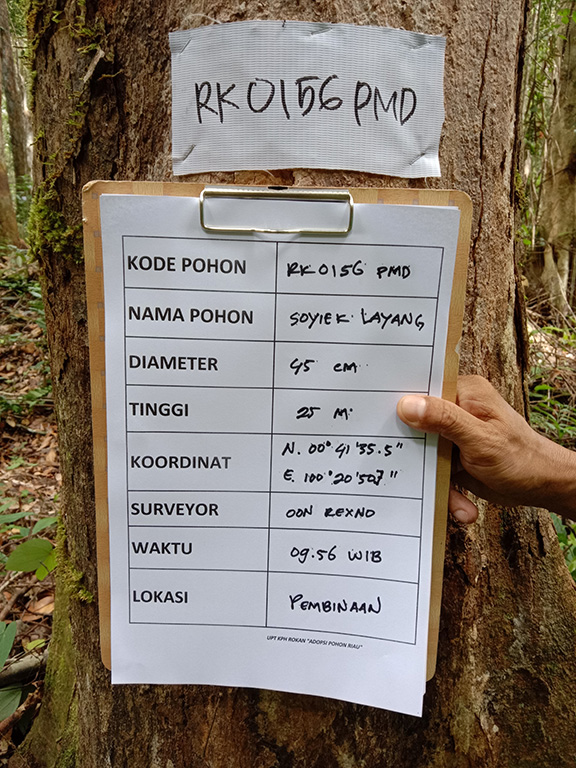 RK0156 PMD
KODE POHON RK0156 PMD
NAMA POHON SOYIEK LAYANG
DIAMETER 45 cm
TINGGI 25 M
KOORDINAT N. 00° 41'35.5"
E. 100°20'507."
SURVEYOR OON REXNO
WAKTU 09.56 WIB
LOKASI PEMBINAAN
UPT KPH ROKAN "ADOPSI POHON RIAU"